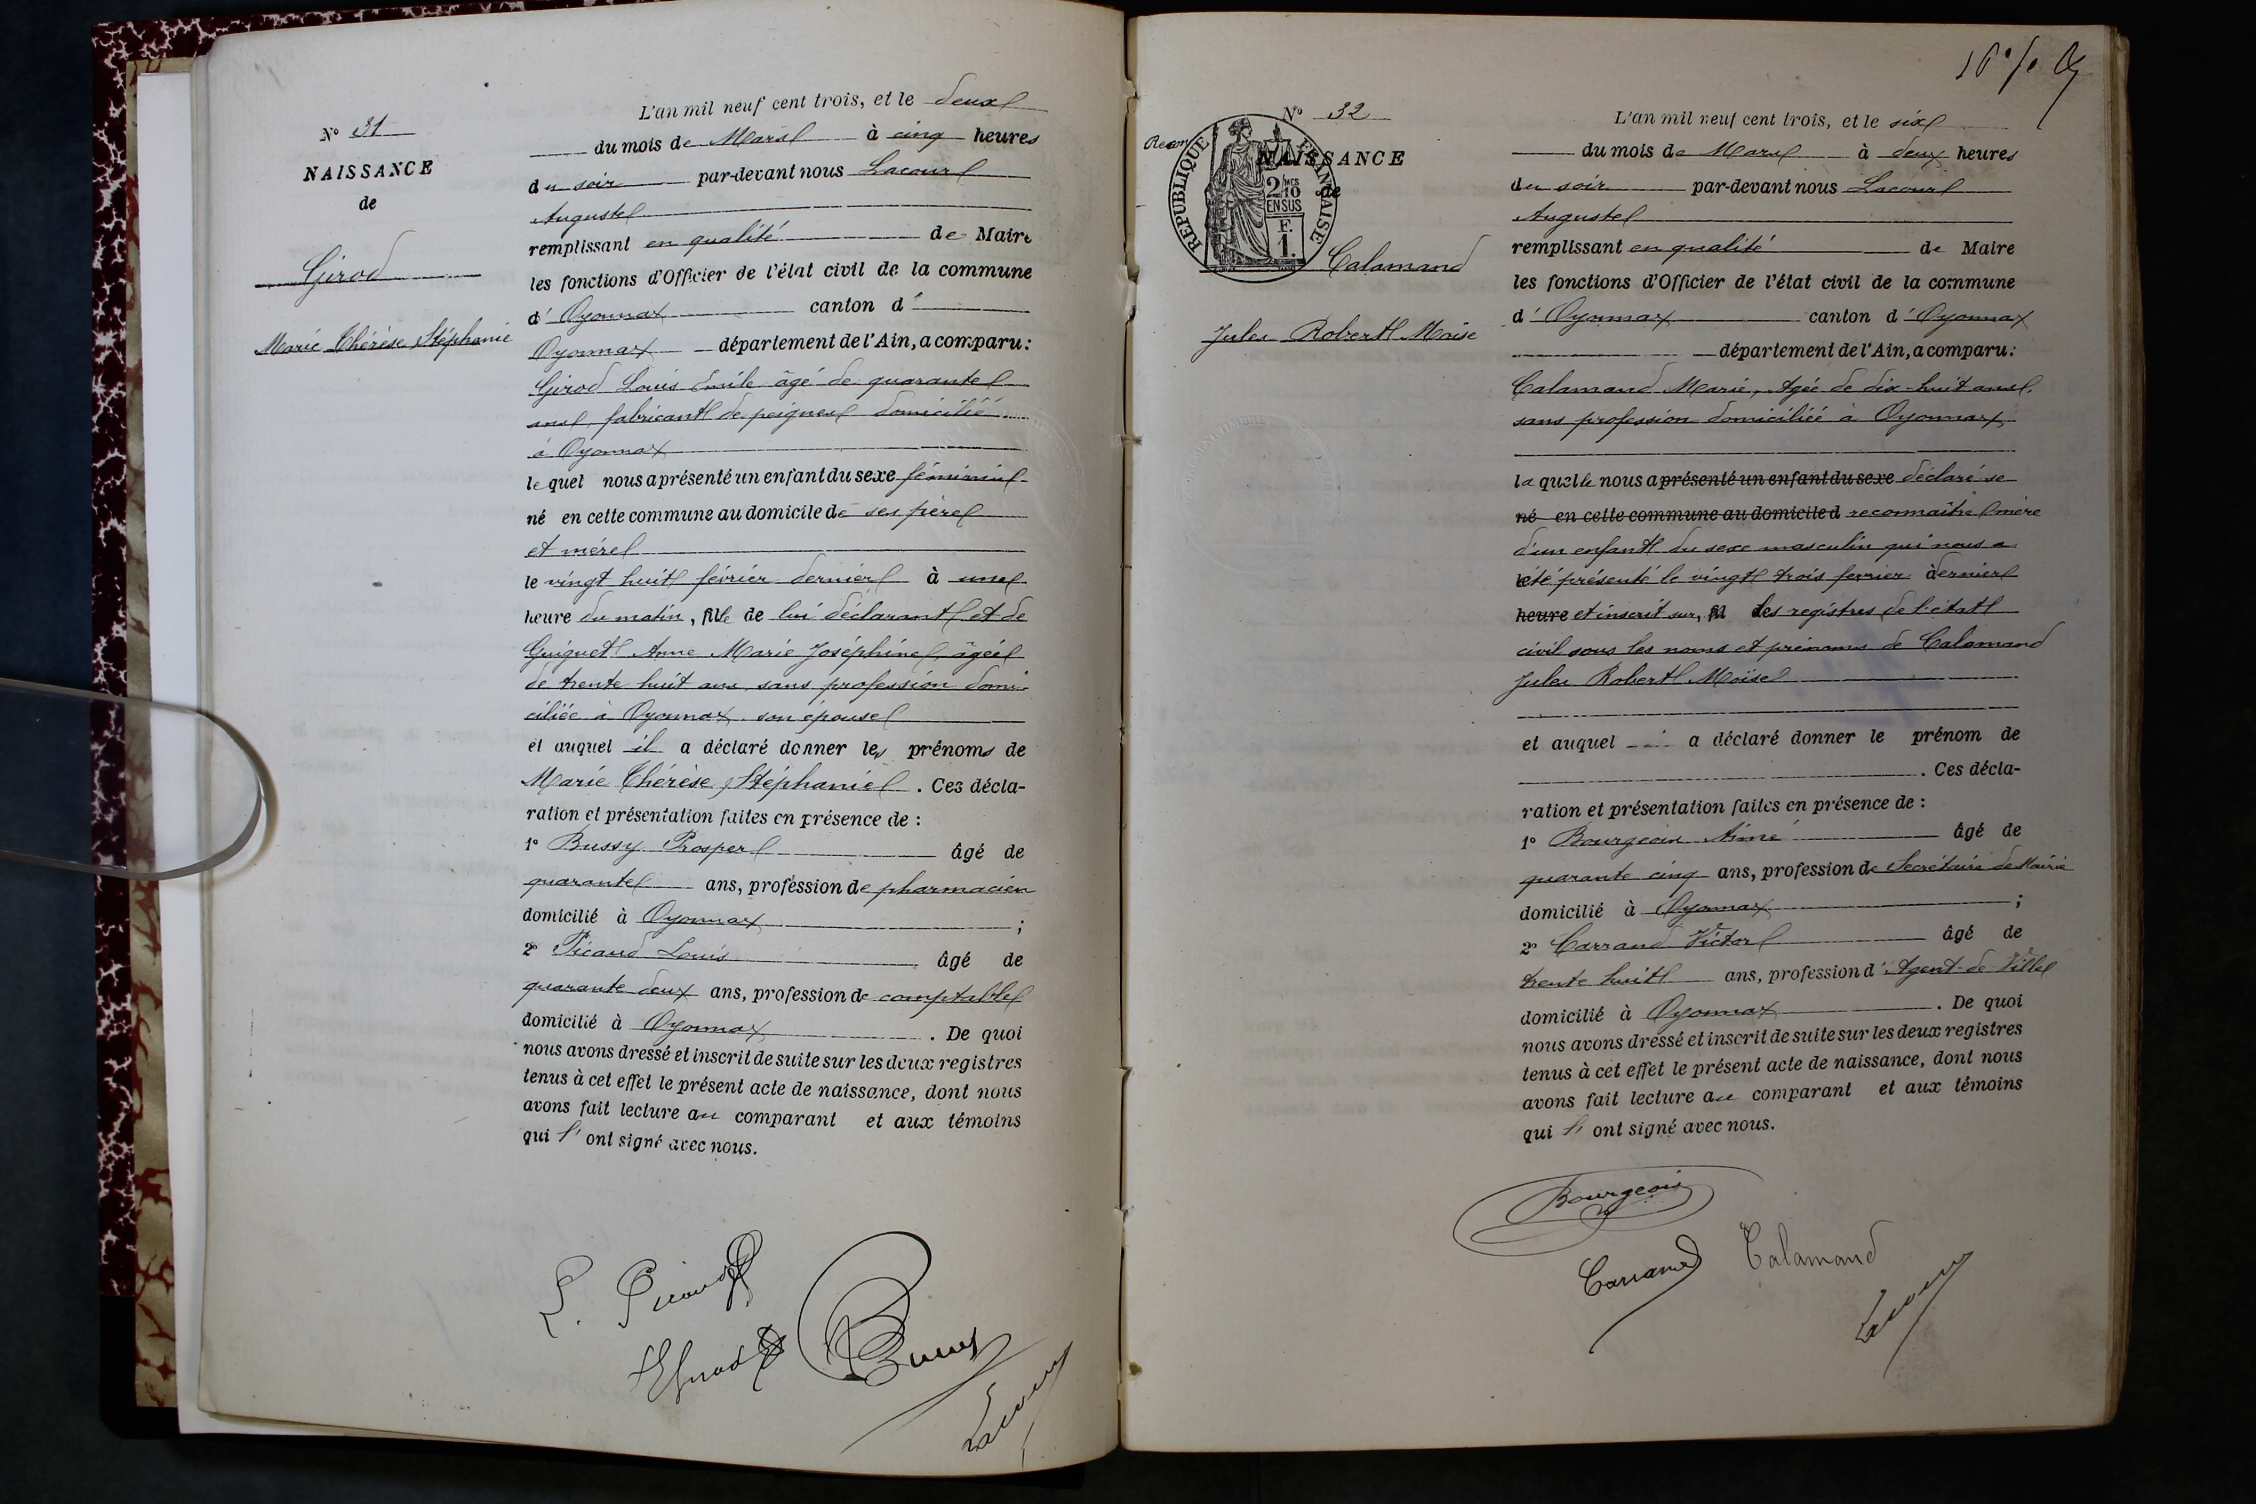 N° 31
NAISSANCE
de
Girod
Marie Thérèse Stéphanie
L'an mil neuf cent trois, et le deux
du mois de Mars à cinq heures
du soir par-devant nous Lacour
Auguste
remplissant en qualité de Maire
les fonctions d'Officier de l'état civil de la commune
d' Oyonnax canton d'
Oyonnax département de l'Ain, a comparu :
Girod Louis Emile âgé de quarante
ans, fabricant de peignes domicilié
à Oyonnax
le quel nous a présenté un enfant du sexe féminin
né en cette commune au domicile de ses père
et mère
le vingt huit février dernier à une
heure du matin, fille de lui déclarant et de
Guiguet Anne Marie Joséphine, âgée
de trente huit ans, sans profession domi-
ciliée à Oyonnax son épouse
et auquel il a déclaré donner les prénoms de
Marie Thérèse, Stéphanie . Ces décla-
ration et présentation faites en présence de :
1° Bussy Prosper âgé de
quarante ans, profession de pharmacien
domicilié à Oyonnax ;
2° Picaud Louis âgé de
quarante deux ans, profession de comptable
domicilié à Oyonnax . De quoi
nous avons dressé et inscrit de suite sur les deux registres
tenus à cet effet le présent acte de naissance, dont nous
avons fait lecture au comparant et aux témoins
qui l' ont signé avec nous.
L. Picaud
EGirod
Bussy
Lacour
N° 32
NAISSANCE
de
RÉPUBLIQUE FRANÇAISE
2/10 EN SUS
F. 1.
Calamand
Jules Robert Moise
L'an mil neuf cent trois, et le six
du mois de Mars à deux heures
du soir par-devant nous Lacour
Auguste
remplissant en qualité de Maire
les fonctions d'Officier de l'état civil de la commune
d' Oyonnax canton d' Oyonnax
département de l'Ain, a comparu :
Calamand Marie, Agée de dix-huit ans,
sans profession domiciliée à Oyonnax
la quelle nous a présenté un enfant du sexe déclaré se
né en cette commune au domicile d reconnaître mère
d'un enfant du sexe masculin qui nous a
le été présenté le vingt trois fevrier à dernier
heure et inscrit sur, fil des registres de l'état
civil sous les noms et prénoms de Calamand
Jules Robert Moïse
et auquel a déclaré donner le prénom de
. Ces décla-
ration et présentation faites en présence de :
1° Bourgeois Aimé âgé de
quarante cinq ans, profession de Secrétaire de Mairie
domicilié à Oyonnax ;
2° Carrand Victor âgé de
trente huit ans, profession d' Agent de Ville
domicilié à Oyonnax . De quoi
nous avons dressé et inscrit de suite sur les deux registres
tenus à cet effet le présent acte de naissance, dont nous
avons fait lecture au comparant et aux témoins
qui l' ont signé avec nous.
Bourgeois
Carrand Calamand
Lacour